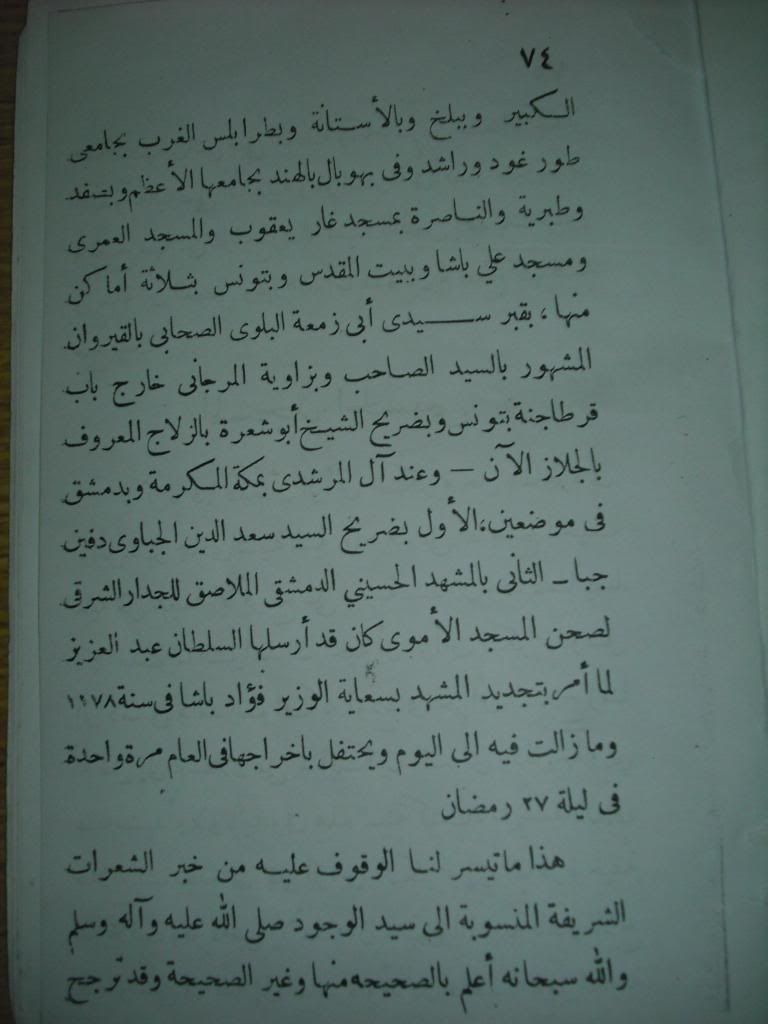 ٧٤
الكبير وببلخ وبالأستانة وبطرابلس الغرب بجامعى
طورغود وراشد وفى بهوبال بالهند بجامعها الأعظم وبصفد
وطبرية والناصرة بمسجد غار يعقوب والمسجد العمرى
ومسجد علي باشا وببيت المقدس وبتونس بثلاثة أماكن
منها، بقبر سيدى أبى زمعة البلوى الصحابي بالقيروان
المشهور بالسيد الصاحب وبزاوية المرجانى خارج باب
قرطاجنة بتونس وبضريح الشيخ أبو شعرة بالزلاج المعروف
بالجلاز الآن — وعند آل المرشدى بمكة المكرمة وبدمشق
فى موضعين، الأول بضريح السيد سعد الدين الجباوى دفين
جبا — الثانى بالمشهد الحسيني الدمشقى الملاصق للجدار الشرقى
لصحن المسجد الأموى كان قد أرسلها السلطان عبد العزيز
لما أمر بتجديد المشهد بسعاية الوزير فؤاد باشا فى سنة ١٢٧٨
وما زالت فيه الى اليوم ويحتفل باخراجها فى العام مرة واحدة
فى ليلة ٢٧ رمضان
هذا ما تيسر لنا الوقوف عليه من خبر الشعرات
الشريفة المنسوبة الى سيد الوجود صلى الله عليه وآله وسلم
والله سبحانه أعلم بالصحيحه منها وغير الصحيحة وقد ترجح